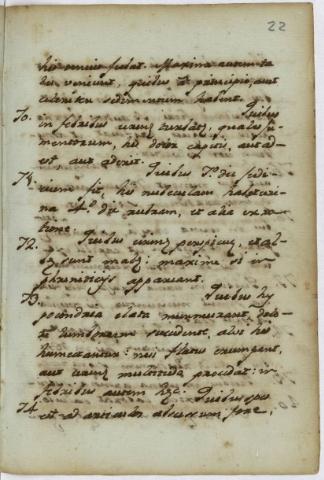 22
his venire solat. Maxime autem ta
les veniunt, quibus à principio, aut
celeriter sedimentum habent.
70. Quibus
in febribus urinę turbatę, quales ju
mentorum, his dolor capitis, aut ad
est, aut aderit.
71. Quibus 7.ª die judi
cium fit, his nubeculam habet uri
na 4.ª die rubram, et alia ex ra
tione.
72. Quibus urinę perspicuę, et al
bę, sunt malę: maxime si in
phreniticis appareant.
73. Quibus hy
pocondria elata murmurant, dolo
re lumborum succedente, alvi his
humectantur: nisi flatus erumpant,
aut urinę multitudo procidat: in
febribus autem hęc.
74. Quibus spes
est ad articulos abscessum fore,